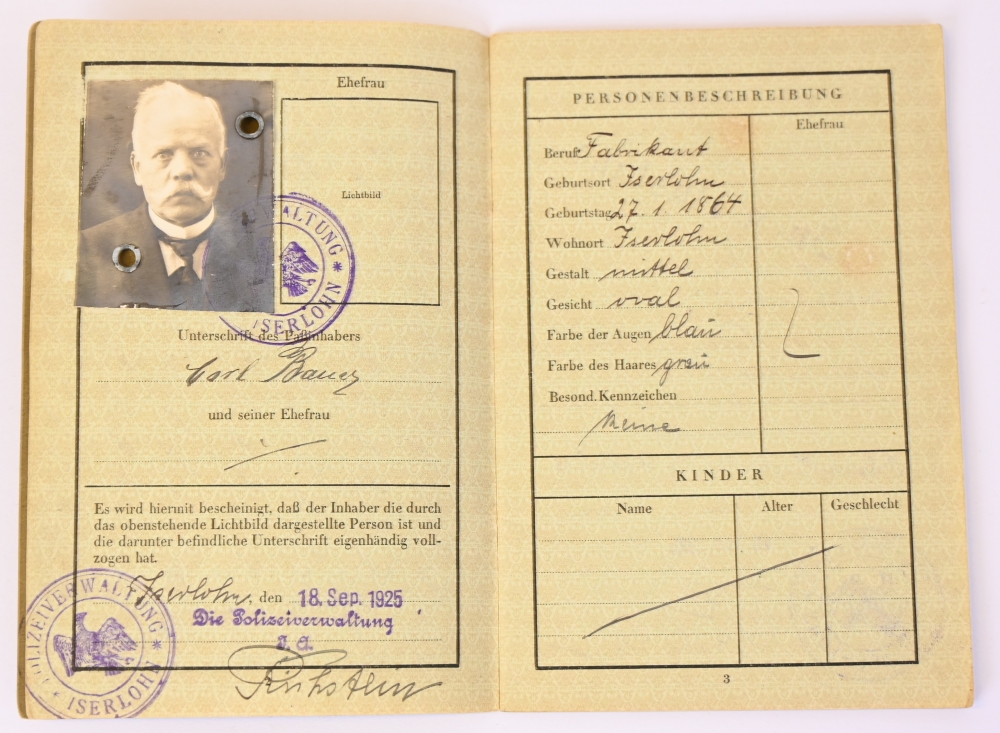 Ehefrau
Lichtbild
WALTUNG * ISERLOHN
Unterschrift des Paßinhabers
Carl Bauer
und seiner Ehefrau
Es wird hiermit bescheinigt, daß der Inhaber die durch
das obenstehende Lichtbild dargestellte Person ist und
die darunter befindliche Unterschrift eigenhändig voll-
zogen hat.
Iserlohn, den 18. Sep. 1925
Die Polizeiverwaltung
I. A.
POLIZEIVERWALTUNG * ISERLOHN *
PERSONENBESCHREIBUNG
Ehefrau
Beruf Fabrikant
Geburtsort Iserlohn
Geburtstag 27. 1. 1864
Wohnort Iserlohn
Gestalt mittel
Gesicht oval
Farbe der Augen blau
Farbe des Haares grau
Besond. Kennzeichen
Keine
KINDER
Name Alter Geschlecht
3